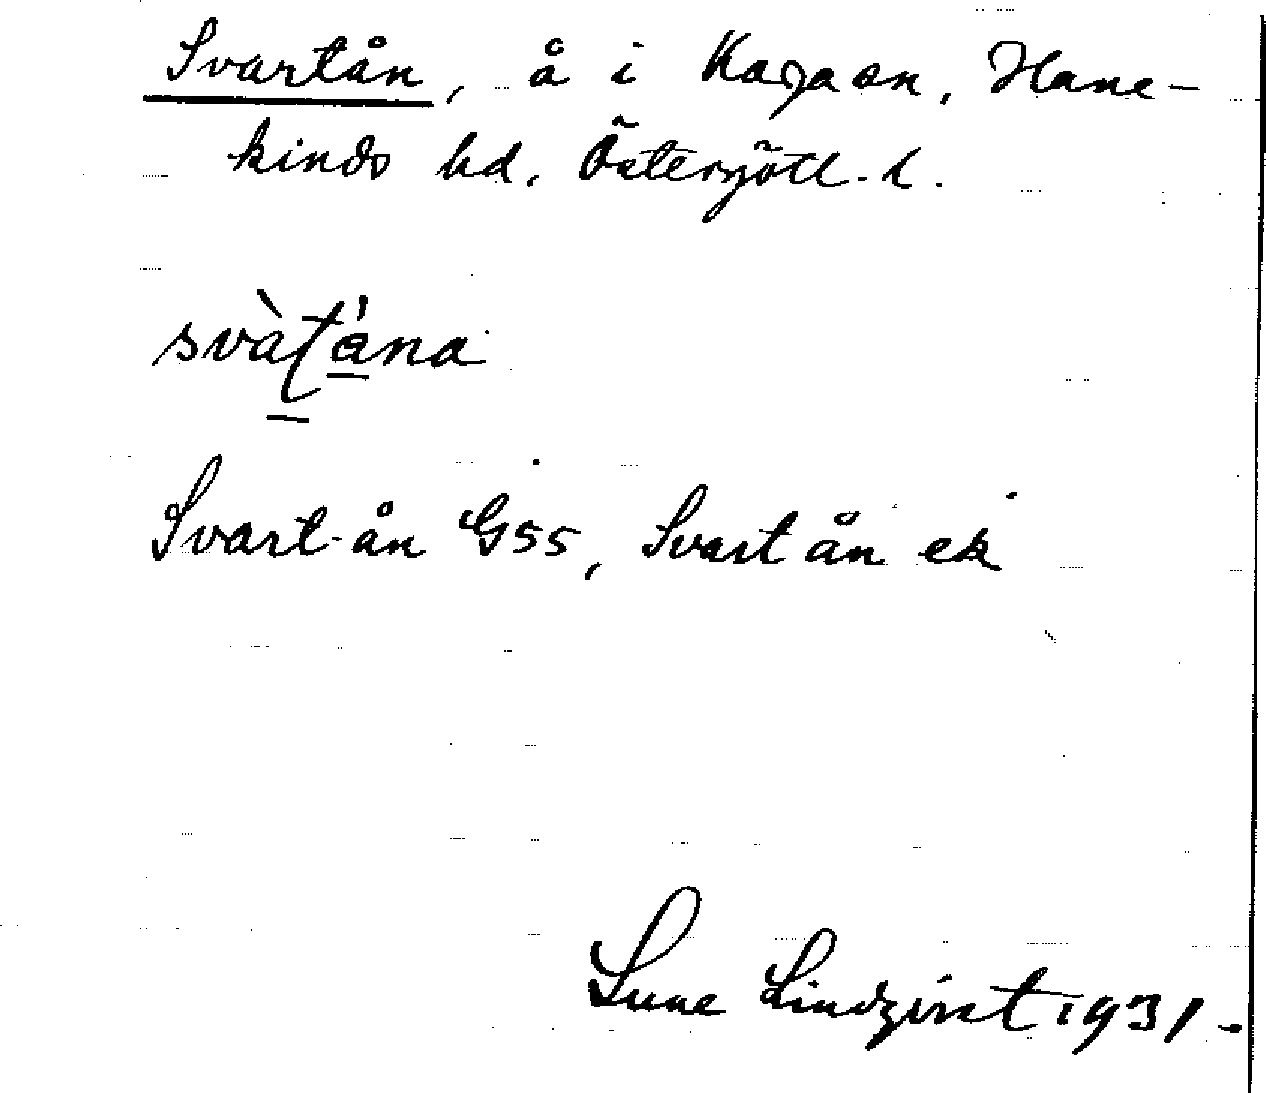 Svartån, å i Kaga sn, Hane-
kinds hd. Östergötl. l.
svàt́ána
Svart-ån G55, Svart ån ek
Sune Lindqvist 1931-